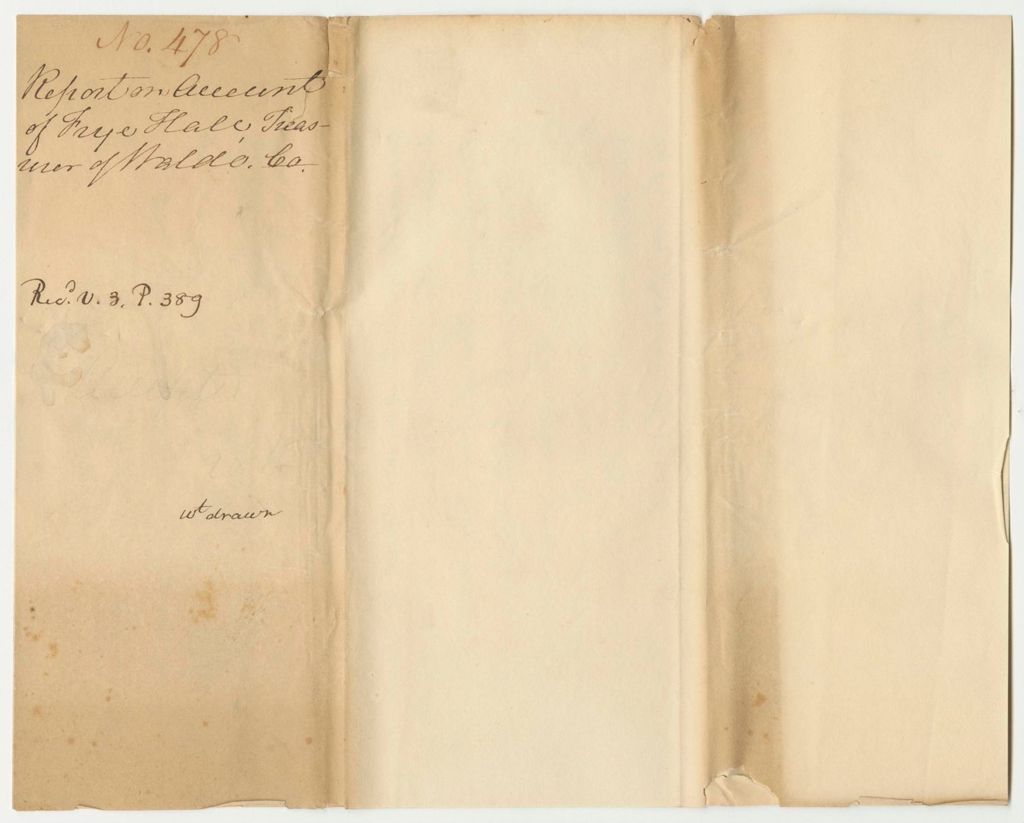 No. 478
Report on Account
of Frye Hall, Treas-
urer of Waldo. Co.
Recd. V. 3. P. 389
wt drawn